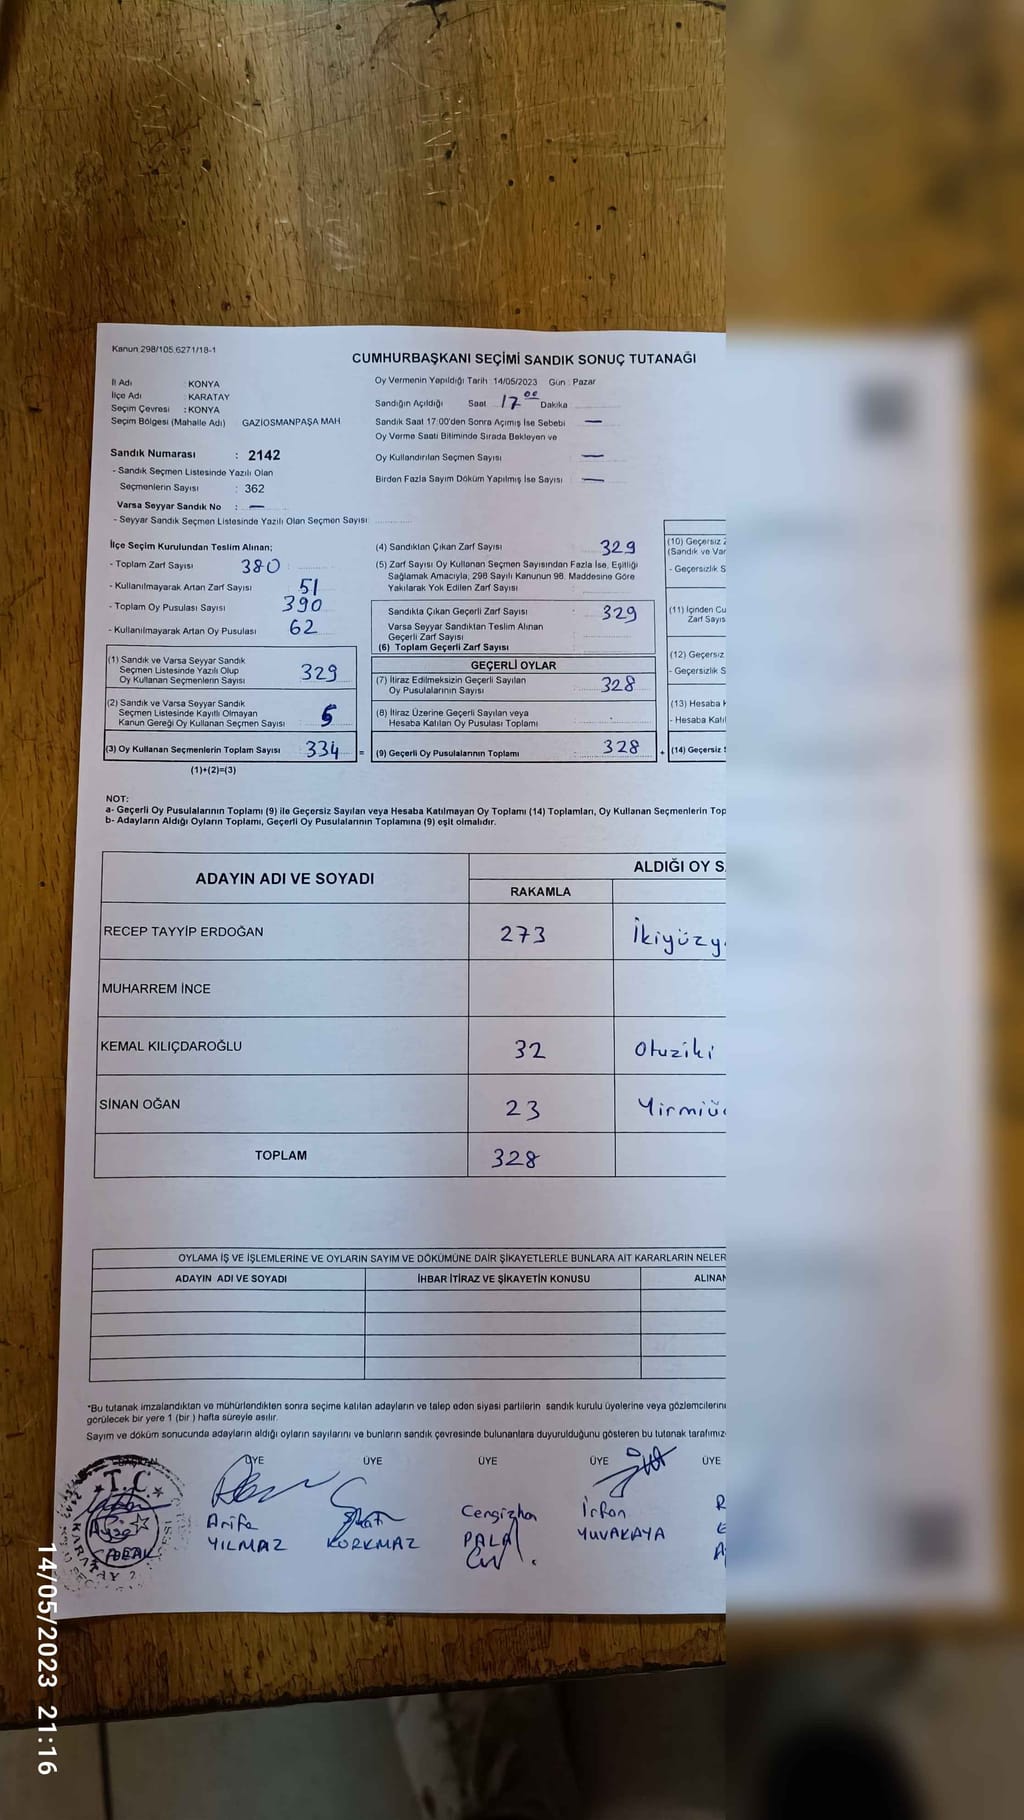 Kanun 298/105.6271/18-1
CUMHURBAŞKANI SEÇİMİ SANDIK SONUÇ TUTANAĞI
İl Adı : KONYA
İlçe Adı : KARATAY
Seçim Çevresi : KONYA
Seçim Bölgesi (Mahalle Adı) GAZİOSMANPAŞA MAH
Sandık Numarası : 2142
- Sandık Seçmen Listesinde Yazılı Olan
Seçmenlerin Sayısı : 362
Varsa Seyyar Sandık No : —
- Seyyar Sandık Seçmen Listesinde Yazılı Olan Seçmen Sayısı
Oy Vermenin Yapıldığı Tarih 14/05/2023 Gün : Pazar
Sandığın Açıldığı Saat 17 00 Dakika
Sandık Saat 17:00'den Sonra Açımış İse Sebebi —
Oy Verme Saati Bitiminde Sırada Bekleyen ve
Oy Kullandırılan Seçmen Sayısı —
Birden Fazla Sayım Döküm Yapılmış İse Sayısı —
İlçe Seçim Kurulundan Teslim Alınan;
- Toplam Zarf Sayısı 380
- Kullanılmayarak Artan Zarf Sayısı 51
- Toplam Oy Pusulası Sayısı 390
- Kullanılmayarak Artan Oy Pusulası 62
(1) Sandık ve Varsa Seyyar Sandık
Seçmen Listesinde Yazılı Olup
Oy Kullanan Seçmenlerin Sayısı 329
(2) Sandık ve Varsa Seyyar Sandık
Seçmen Listesinde Kayıtlı Olmayan
Kanun Gereği Oy Kullanan Seçmen Sayısı 5
(3) Oy Kullanan Seçmenlerin Toplam Sayısı 334 =
(1)+(2)=(3)
(4) Sandıktan Çıkan Zarf Sayısı 329
(5) Zarf Sayısı Oy Kullanan Seçmen Sayısından Fazla İse, Eşitliği
Sağlamak Amacıyla, 298 Sayılı Kanunun 98. Maddesine Göre
Yakılarak Yok Edilen Zarf Sayısı
Sandıkta Çıkan Geçerli Zarf Sayısı 329
Varsa Seyyar Sandıktan Teslim Alınan
Geçerli Zarf Sayısı
(6) Toplam Geçerli Zarf Sayısı
GEÇERLİ OYLAR
(7) İtiraz Edilmeksizin Geçerli Sayılan
Oy Pusulalarının Sayısı 328
(8) İtiraz Üzerine Geçerli Sayılan veya
Hesaba Katılan Oy Pusulası Toplamı
(9) Geçerli Oy Pusulalarının Toplamı 328 +
(10) Geçersiz
(Sandık ve Var
- Geçersizlik S
(11) İçinden Çı
Zarf Sayıs
(12) Geçersiz
- Geçersizlik S
(13) Hesaba K
- Hesaba Katıl
(14) Geçersiz
NOT:
a- Geçerli Oy Pusulalarının Toplamı (9) ile Geçersiz Sayılan veya Hesaba Katılmayan Oy Toplamı (14) Toplamları, Oy Kullanan Seçmenlerin Top
b- Adayların Aldığı Oyların Toplamı, Geçerli Oy Pusulalarının Toplamına (9) eşit olmalıdır.
ADAYIN ADI VE SOYADI
ALDIĞI OY S
RAKAMLA
RECEP TAYYİP ERDOĞAN 273 İkiyüzy
MUHARREM İNCE
KEMAL KILIÇDAROĞLU 32 Otuziki
SİNAN OĞAN 23 Yirmiü
TOPLAM 328
OYLAMA İŞ VE İŞLEMLERİNE VE OYLARIN SAYIM VE DÖKÜMÜNE DAİR ŞİKAYETLERLE BUNLARA AİT KARARLARIN NELER
ADAYIN ADI VE SOYADI İHBAR İTİRAZ VE ŞİKAYETİN KONUSU ALINAN
*Bu tutanak imzalandıktan ve mühürlendikten sonra seçime katılan adayların ve talep eden siyasi partilerin sandık kurulu üyelerine veya gözlemcilerine
görülecek bir yere 1 (bir) hafta süreyle asılır.
Sayım ve döküm sonucunda adayların aldığı oyların sayılarını ve bunların sandık çevresinde bulunanlara duyurulduğunu gösteren bu tutanak tarafımız
BAŞKAN ÜYE ÜYE ÜYE ÜYE ÜYE
T.C.
Arife
YILMAZ
KORKMAZ
Cengizhan
PALA
İrfan
YUVAKAYA
14/05/2023 21:16